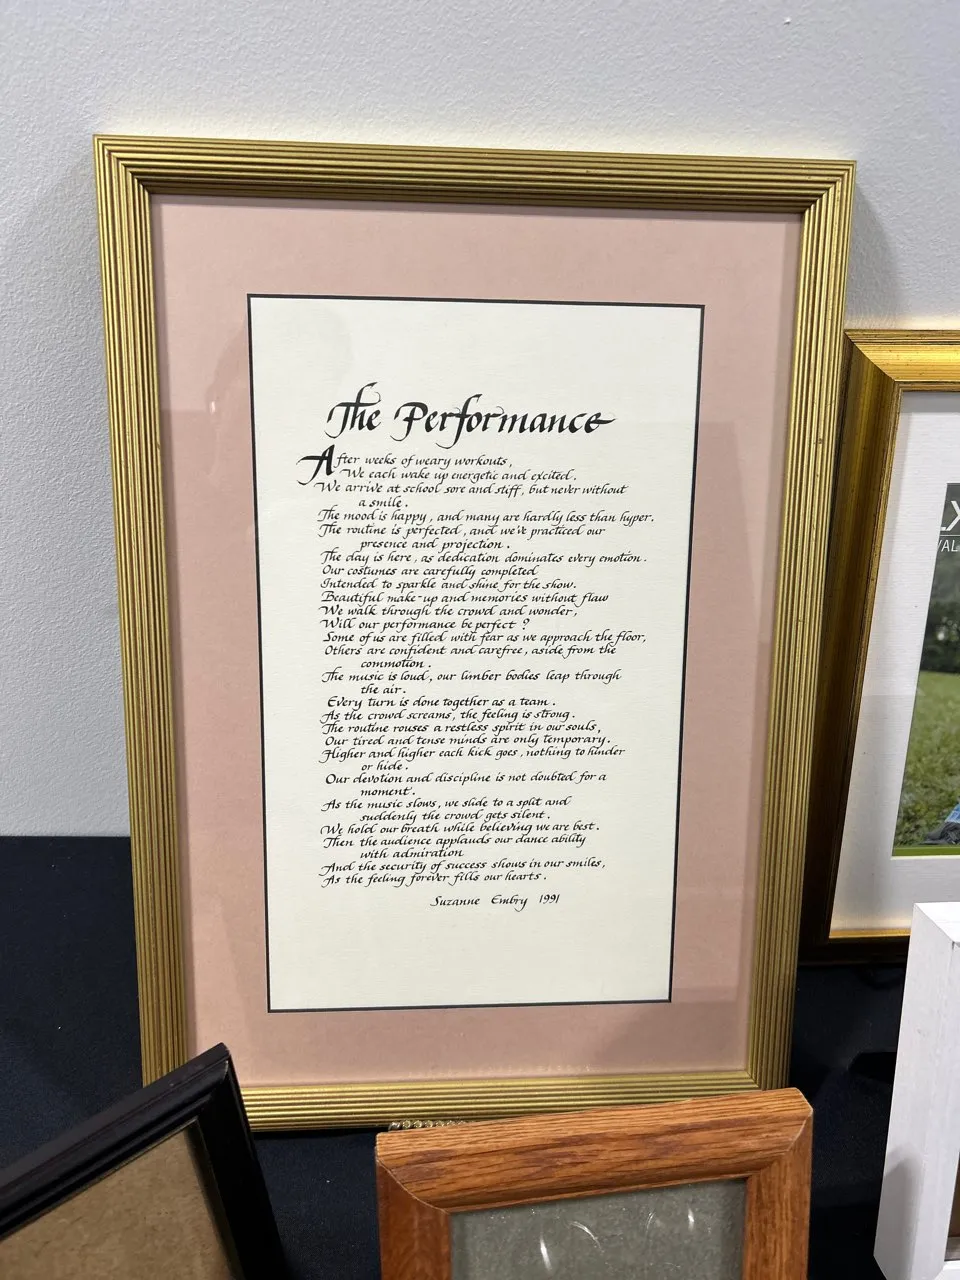 The Performance
After weeks of weary workouts,
We each wake up energetic and excited.
We arrive at school sore and stiff, but never without
a smile.
The mood is happy, and many are hardly less than hyper.
The routine is perfected, and we've practiced our
presence and projection.
The day is here, as dedication dominates every emotion.
Our costumes are carefully completed
Intended to sparkle and shine for the show.
Beautiful make-up and memories without flaw
We walk through the crowd and wonder,
Will our performance be perfect ?
Some of us are filled with fear as we approach the floor,
Others are confident and carefree, aside from the
commotion.
The music is loud, our limber bodies leap through
the air.
Every turn is done together as a team.
As the crowd screams, the feeling is strong.
The routine rouses a restless spirit in our souls,
Our tired and tense minds are only temporary.
Higher and higher each kick goes, nothing to hinder
or hide.
Our devotion and discipline is not doubted for a
moment.
As the music slows, we slide to a split and
suddenly the crowd gets silent.
We hold our breath while believing we are best.
Then the audience applauds our dance ability
with admiration
And the security of success shows in our smiles,
As the feeling forever fills our hearts.
Suzanne Embry 1991